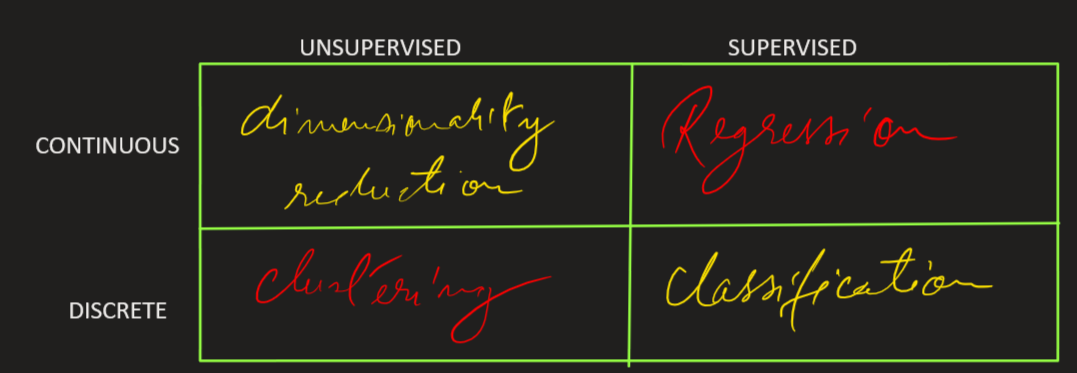 UNSUPERVISED SUPERVISED
CONTINUOUS dimensionality Regression
reduction
DISCRETE clustering classification